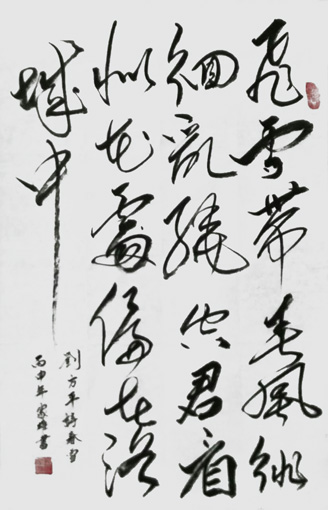 飛雪帶春風徘
徊亂繞空君看
似花處偏在洛
城中
劉方平詩春雪
丙申年家書